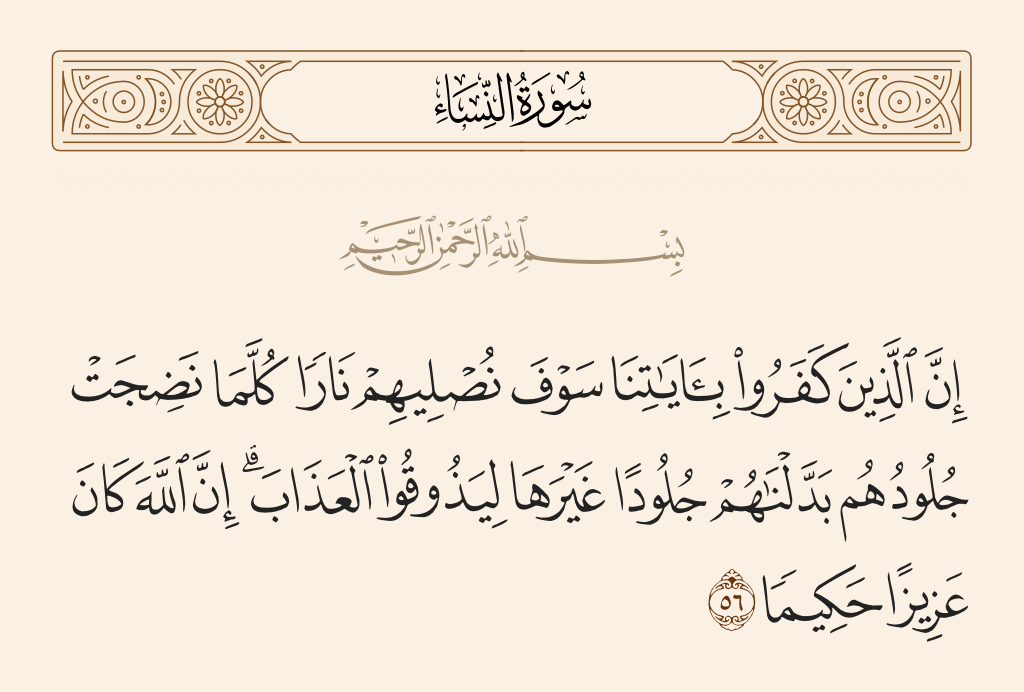 سُورَةُ النِّسَاءِ
بِسْمِ ٱللَّهِ ٱلرَّحْمَٰنِ ٱلرَّحِيمِ
إِنَّ ٱلَّذِينَ كَفَرُوا۟ بِـَٔايَـٰتِنَا سَوْفَ نُصْلِيهِمْ نَارًا كُلَّمَا نَضِجَتْ
جُلُودُهُم بَدَّلْنَـٰهُمْ جُلُودًا غَيْرَهَا لِيَذُوقُوا۟ ٱلْعَذَابَ ۗ إِنَّ ٱللَّهَ كَانَ
عَزِيزًا حَكِيمًا ٥٦